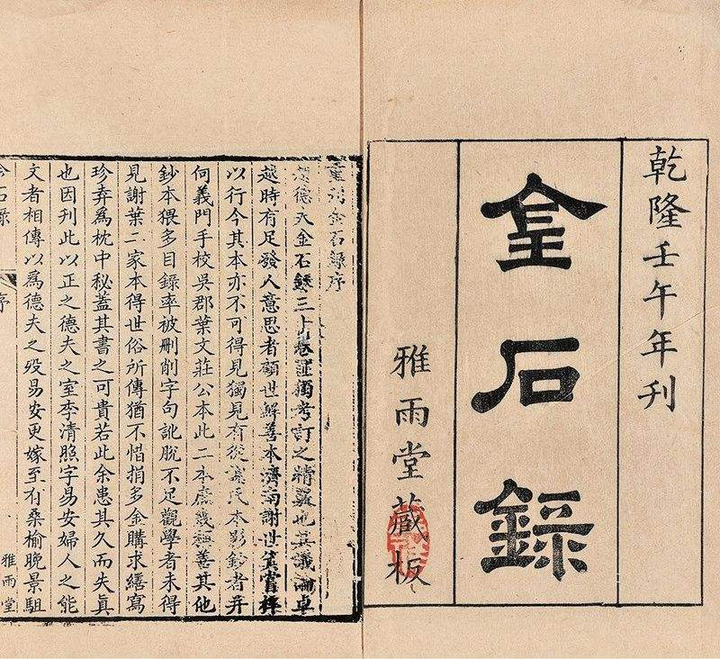 乾隆壬午年刊
金石錄
雅雨堂藏板
重刊金石錄序
德夫金石錄三十卷匪獨考訂之精覈也其議論卓
越時有足發人意思者顧世鮮善本濟南謝世箕嘗梓
以行今其本亦不可得見獨見有從謝氏本影鈔者并
何義門手校吳郡葉文莊公本此二本庶幾稱善其他
鈔本猥多目錄率被刪削字句訛脫不足觀學者未得
見謝葉二家本得世俗所傳猶不惜捐多金購求繕寫
珍弆爲枕中秘蓋其書之可貴若此余患其久而失眞
也因刊此以正之德夫之室李清照字易安婦人之能
文者相傳以爲德夫之歿易安更嫁至有桑榆晚景駔
金石錄 序 雅雨堂